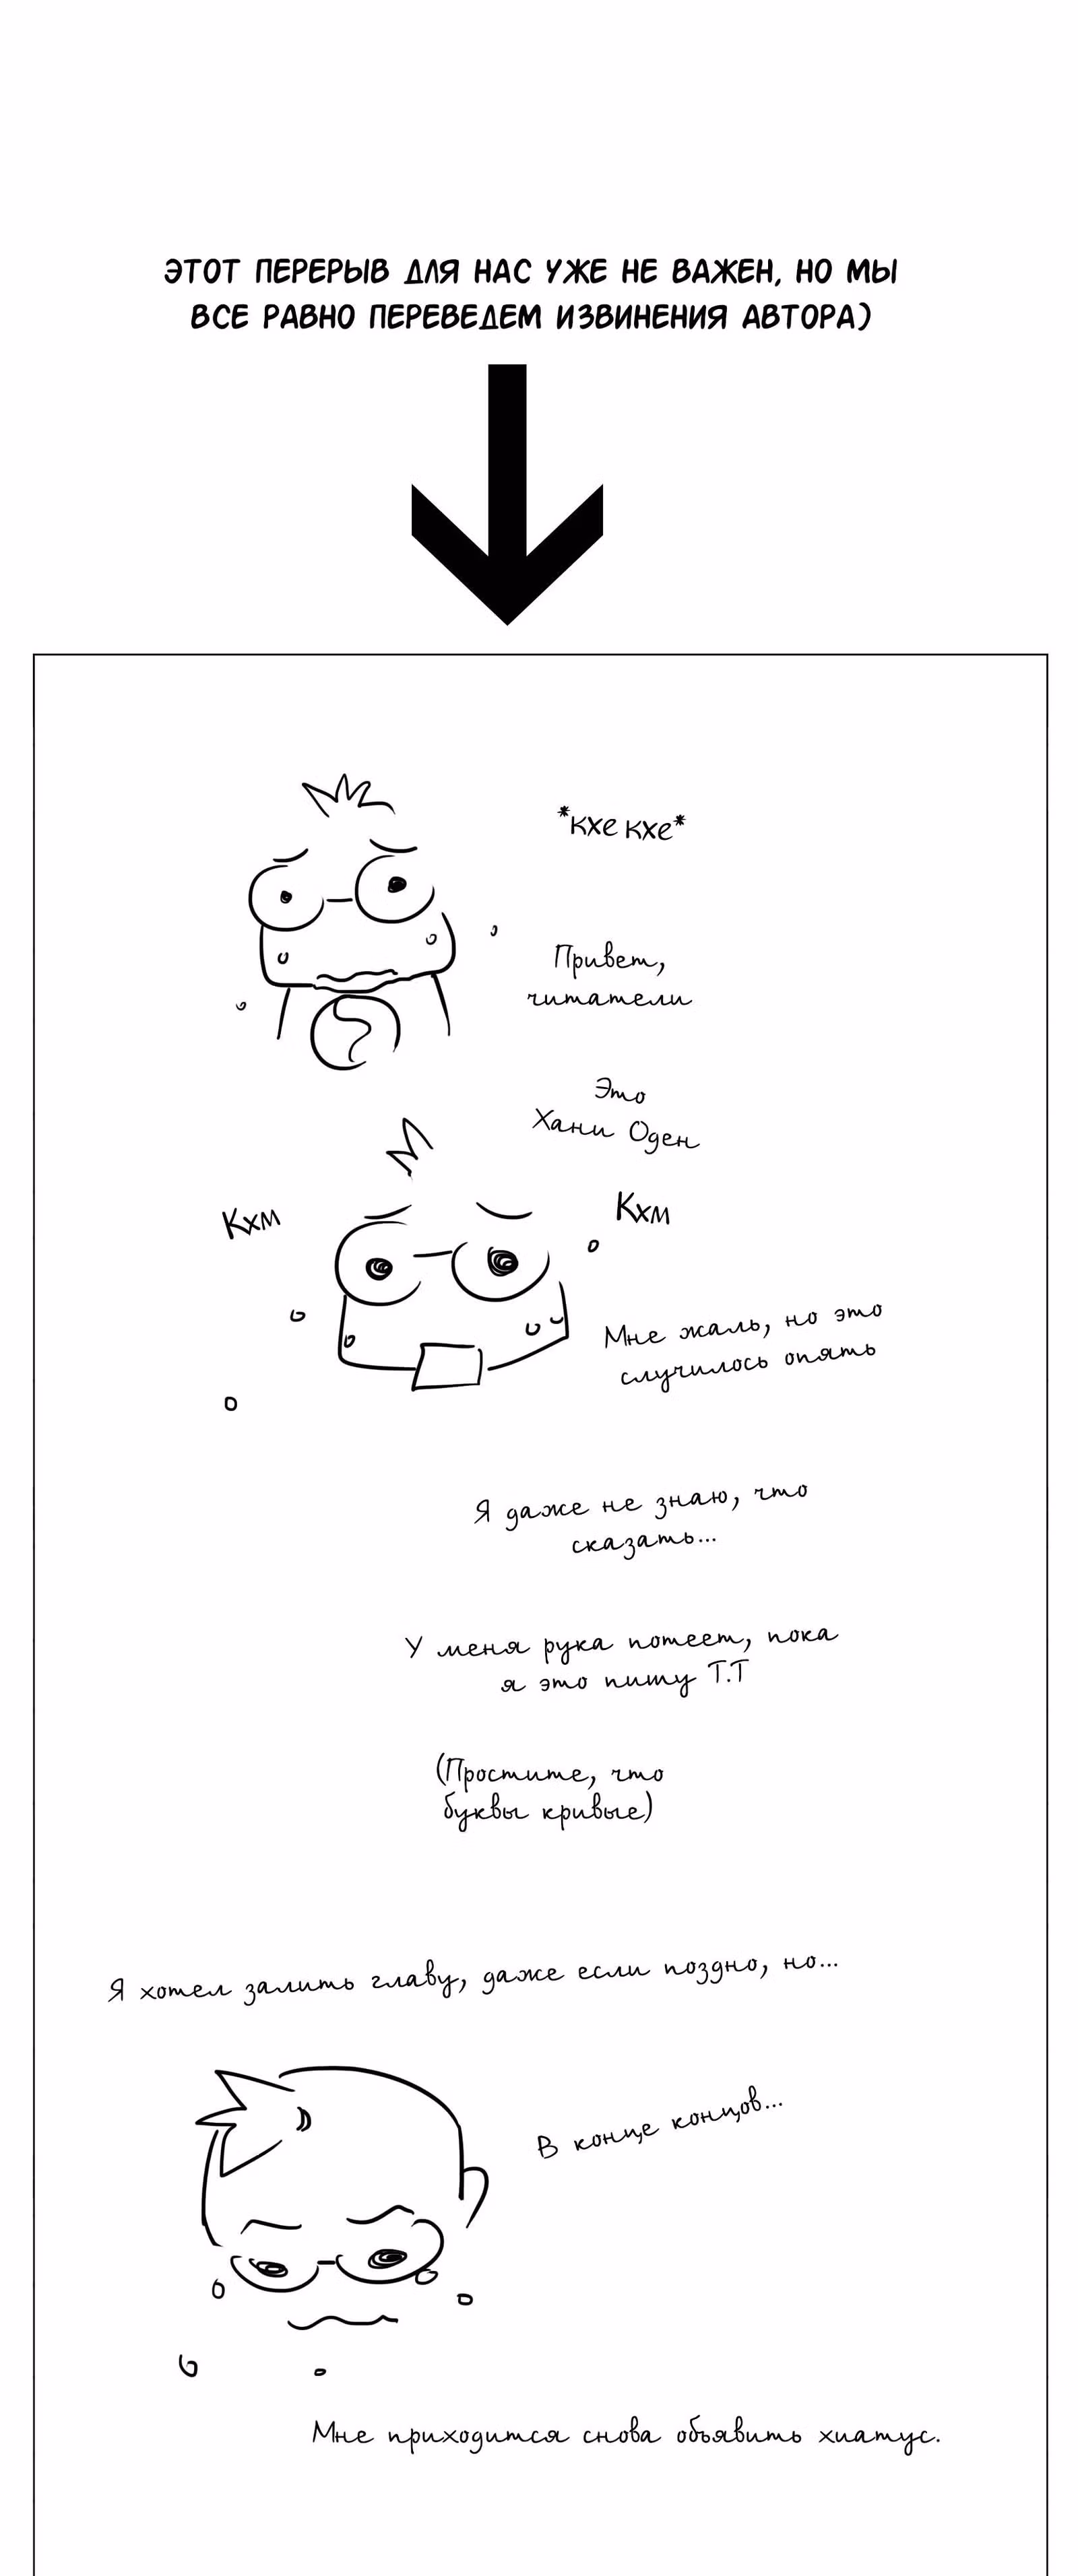 ЭТОТ ПЕРЕРЫВ ДЛЯ НАС УЖЕ НЕ ВАЖЕН, НО МЫ
ВСЕ РАВНО ПЕРЕВЕДЕМ ИЗВИНЕНИЯ АВТОРА)
*кхе кхе*
Привет,
читатели
Это
Хани Оден
Кхм
Кхм
Мне жаль, но это
случилось опять
Я даже не знаю, что
сказать...
У меня рука потеет, пока
я это пишу Т.Т
(Простите, что
буквы кривые)
Я хотел залить главу, даже если поздно, но...
В конце концов...
Мне приходится снова объявить хиатус.